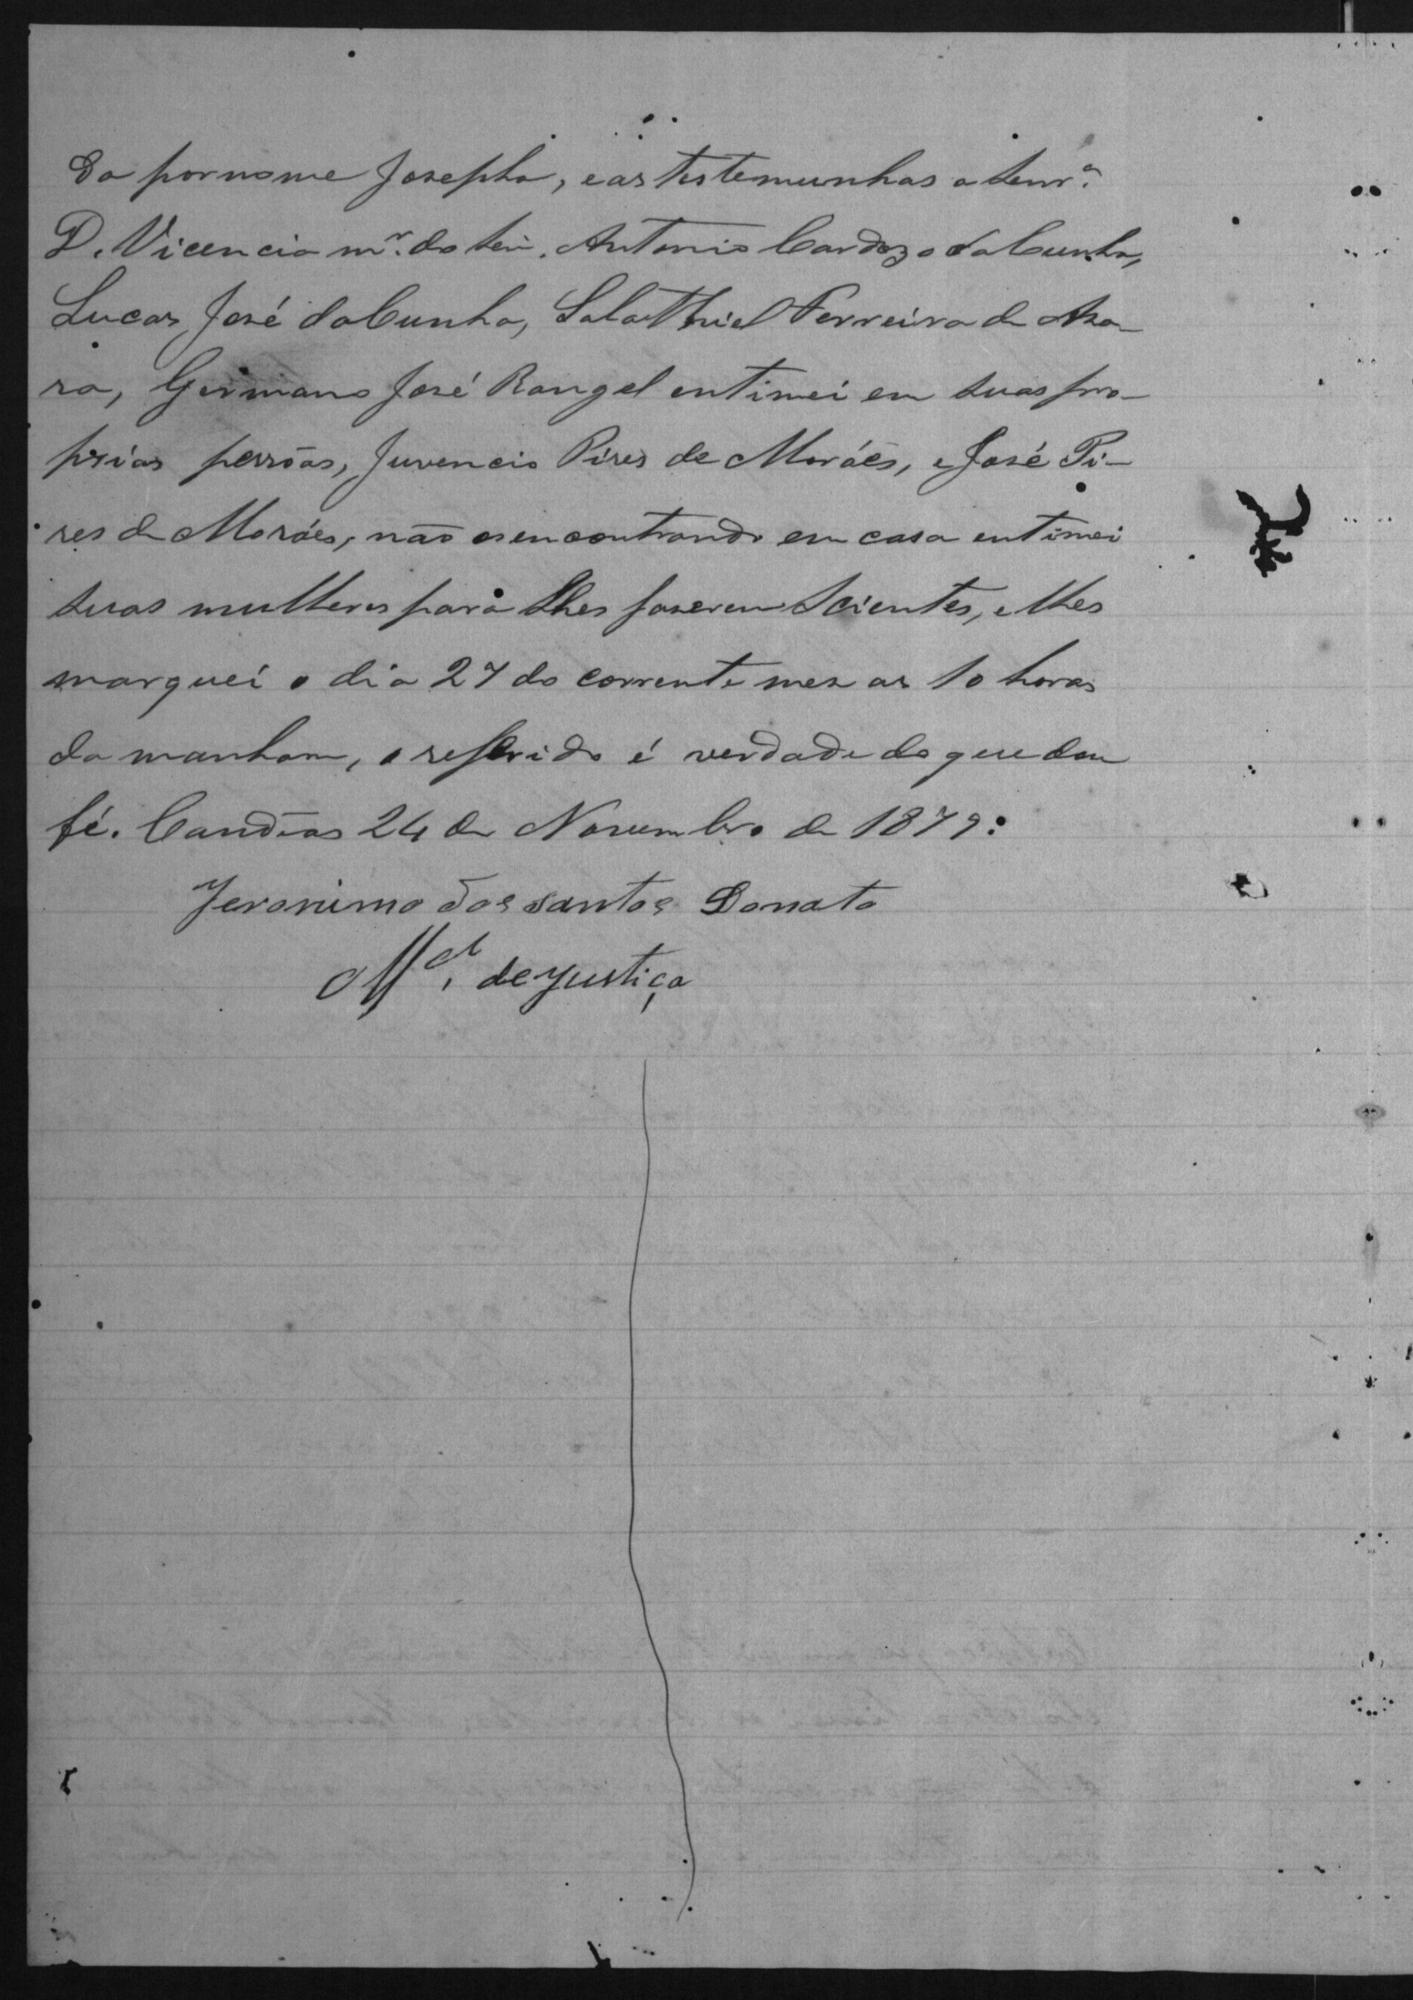 da por nome Josepha, e as testemunhas a Senr.ª
D. Vicencia m.er do Senr. Antonio Cardozo da Cunha,
Lucas José da Cunha, Salathiel Ferreira de Aza-
ra, Germano José Rangel entimei em suas pro-
prias pessôas, Juvencio Pires de Moráes, e José Pi-
res de Moráes, não os encontrando em casa entimei
suas mulheres para lhes faserem Scientes, e lhes
marquei o dia 27 do corrente mez as 10 horas
da manham, o referido é verdade do que dou
fé. Candêas 24 de Novembro de 1879.
Jeronimo dos santos Donato
Off.al de Justiça